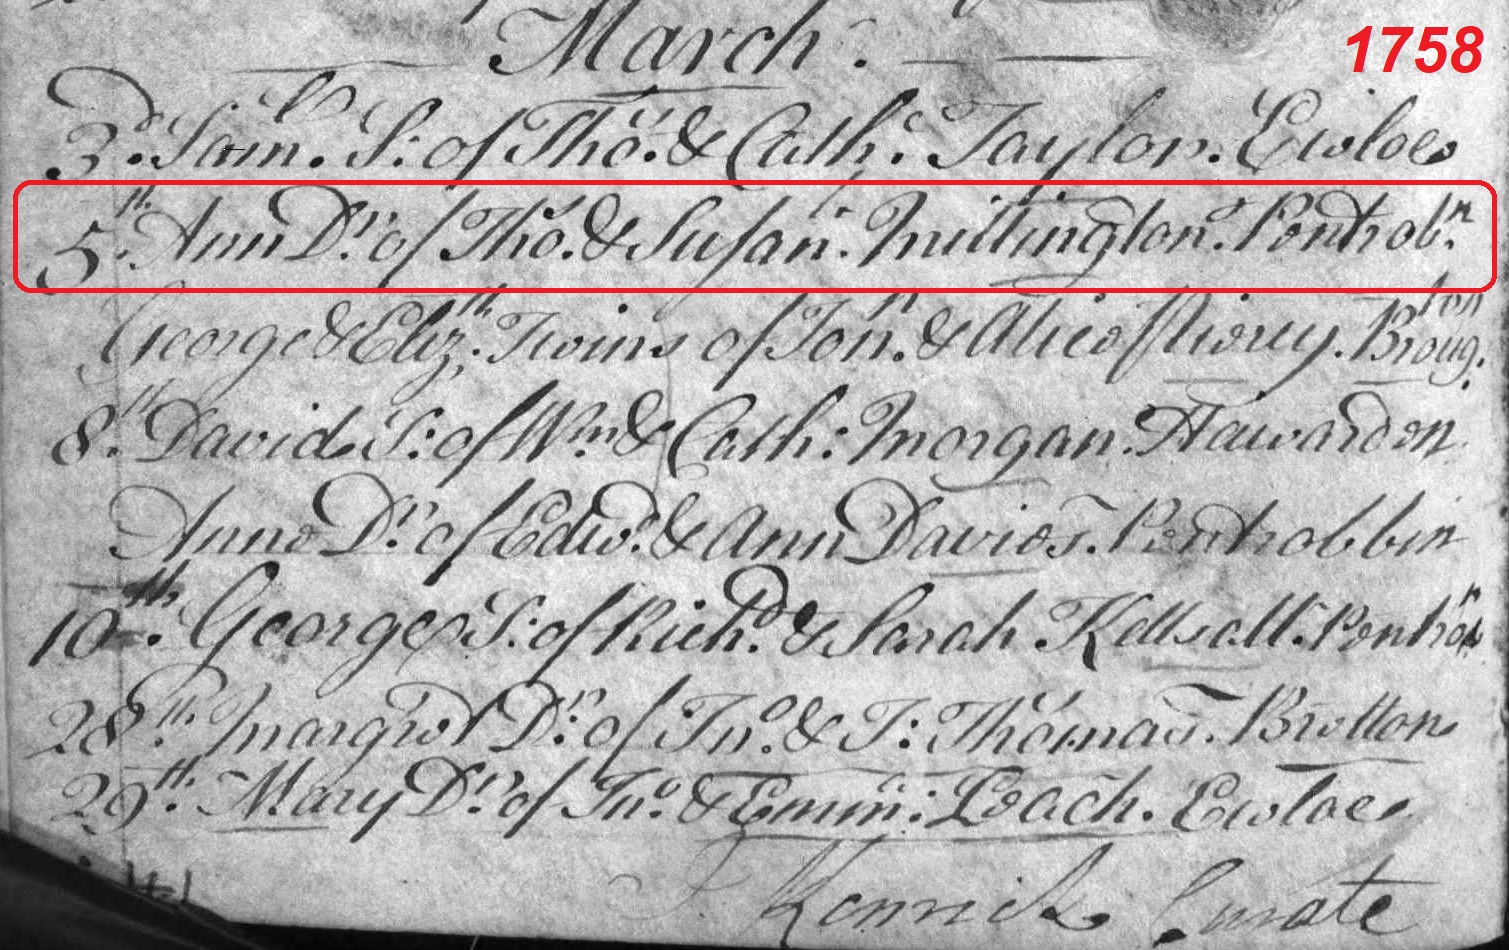 March. 1758
3d. Sam. S: of Tho: & Cath: Taylor. Ewloe
5th. Ann Dr: of Tho: & Susan: Millington. Pentrobn.
George & Eliz:th Twins of Jon: & Alice Broughton.
8th. David S: of Wm: & Cath: Morgan. Hawarden
Anne Dr: of Edwd. & Ann Davies. Pentrobbin
10th. George S: of Richd: & Sarah Kellsall. Pentrobn
28th. Margret Dr: of Jno. & T: Thomas. Bretton
29th. Mary Dr: of Jno: & Emm: Leach. Ewloe
Kenrick Curate